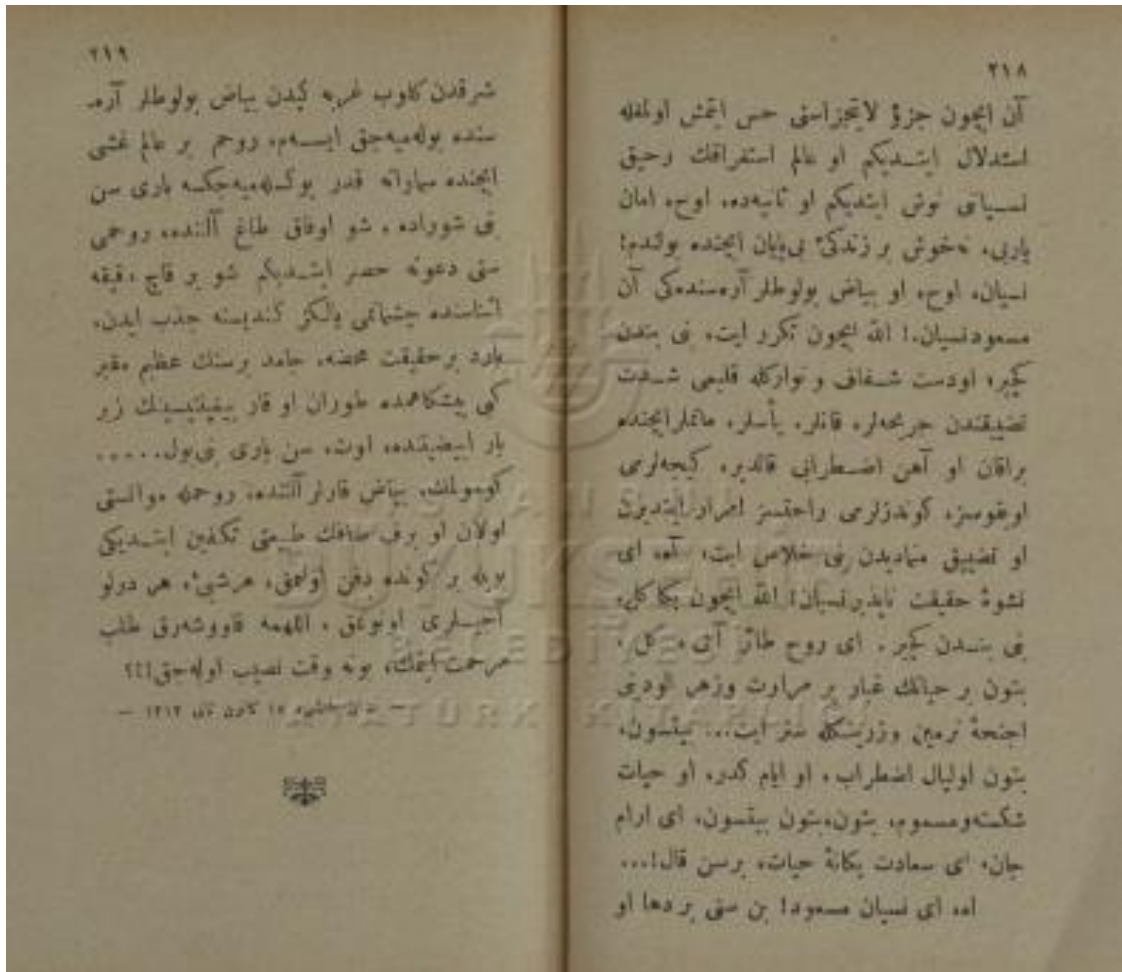 ٢١٨
آن ایچون جزؤ لایتجزاسنی حس ایتمش اولمغله
استدلال ایتدیکم او عالم استغراقك رحیق
نسیانی نوش ایتدیکم او ثانیه‌ده، اوح، امان
یاربی، نه‌خوش بر زندکیٔ بی‌پایان ایچنده بولندم!
نسیان، اوح، او بیاض بولوطلر آره‌سنده‌کی آن
مسعود نسیان.! الله ایچون تکرر ایت، بنی بندن
کچیر، اودست شفاف و نوازکله قلبمی شدت
تضییقندن جریحه‌لر، قانلر، یأسلر، ماتملر ایچنده
براقان او آهن اضطرابی قالدیر، کیجه‌لرمی
اویقوسز، کوندزلرمی راحتسز امرار ایتدیرن
او تضییق متمادیدن بنی خلاص ایت، آه، ای
نشوهٔ حقیقت ناپذیر نسیان! الله ایچون بکا کل،
بنی بندن کچیر. ای روح طائر آتی، کل،
بتون بر حیاتك غبار پر مرارت وزهر آلودینی
اجنحهٔ نرمین وزرینکله ستر ایت... بیتسون،
بتون اولیال اضطراب، او ایام کدر، او حیات
شکسته‌ومسموم، بتون،بتون بیتسون، ای آرام
جان، ای سعادت یکانهٔ حیات، برسن قال!...
آه، ای نسیان مسعود! بن سنی بر دها او
٢١٩
شرقدن کلوب غربه کیدن بیاض بولوطلر آره‌
سنده بوله‌میه‌جق ایسه‌م، روحم بر عالم غشی
ایچنده سمایه قدر یوکسله‌میه‌جکسه باری سن
بنی شوراده، شو اوفاق طاغ آلتنده، روحمی
سنی دعوته حصر ایتدیکم شو بر قاچ دقیقه
اثناسنده چشمانمی یالکز کندیسنه جذب ایدن،
بارد بر حقیقت محضه، جامد برسنك عظیم مقبر
کبی پیشکاهمده طوران او قار ییغینتیسینك زیر
بار ابیضیتنده، اوت، سن باری بنی بول.....
کومولمك، بیاض قارلر آلتنده، روحمله موانستی
اولان او برف صافك طبیعتی تکفین ایتدیکی
بویله بر کونده دفن اولنمق، هرشیئی، هر درلو
آجیلری اونوتمق، اللهمه قاووشه‌رق طلب
مرحمت ایتمك، بونه وقت نصیب اوله‌جق!؟
١٥ کانون ثانی ١٣١٣ —